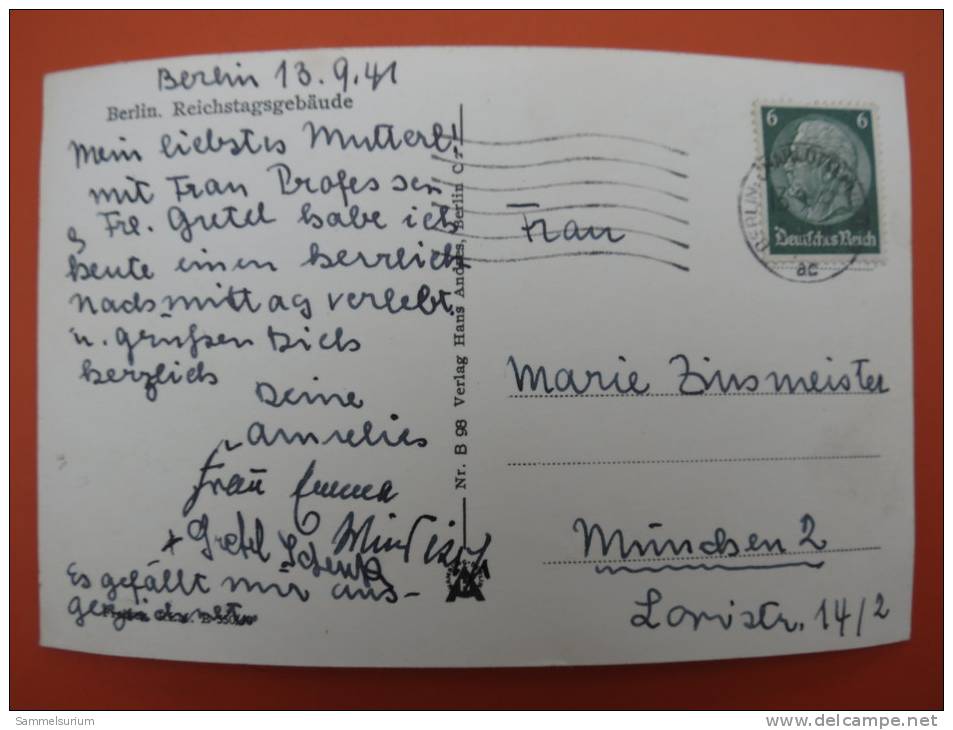 Berlin 13.9.41
Berlin. Reichstagsgebäude
Mein liebstes Mutterl!
mit Frau Professor
Frl. Gretel habe ich
heute einen herrlich
nachmittag verlebt.
u. grüßen Dich
herzlich
Deine
Annelies
Frau Emma
+ Gretel Schenk
Es gefällt mir aus-
gezeichnet
Nr. B 98 Verlag Hans Andres, Berlin C
6 6
Deutsches Reich
BERLIN-CHARLOTTENBURG
ac
Frau
Marie Zinsmeister
München 2
Loristr. 14/2
Sammelsurium
www.delcampe.net